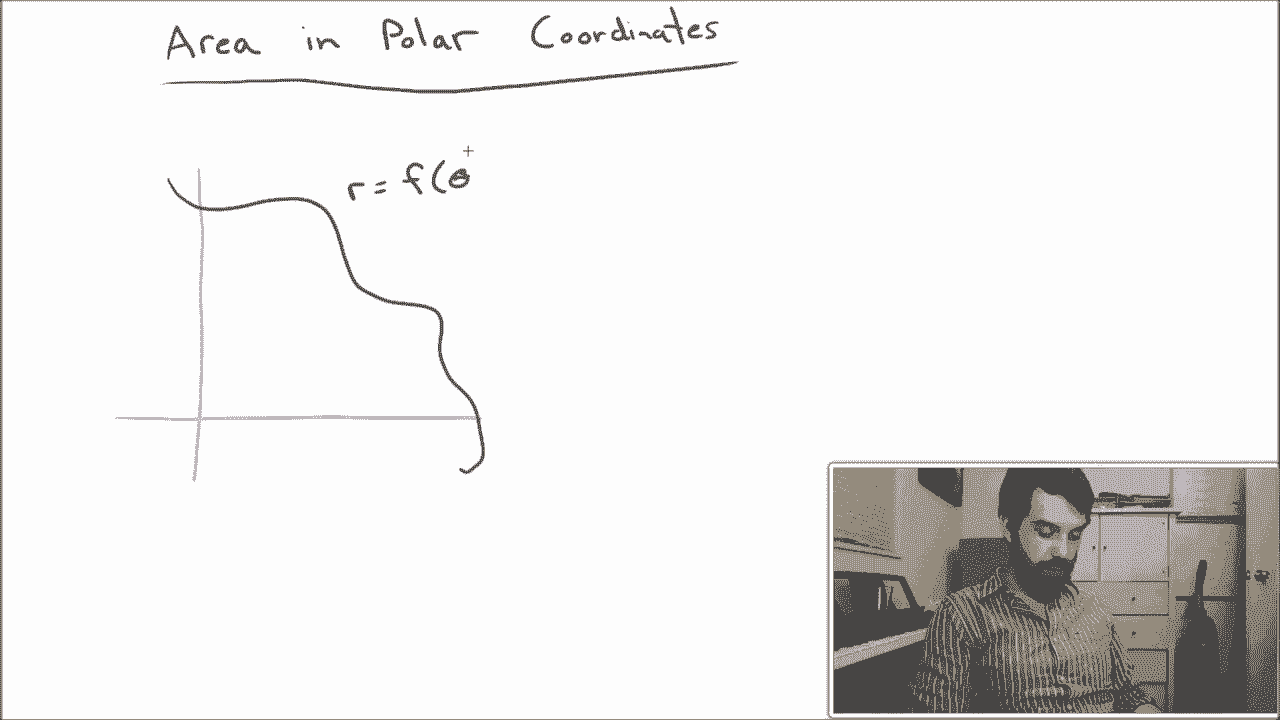 Area in Polar Coordinates
r = f(θ